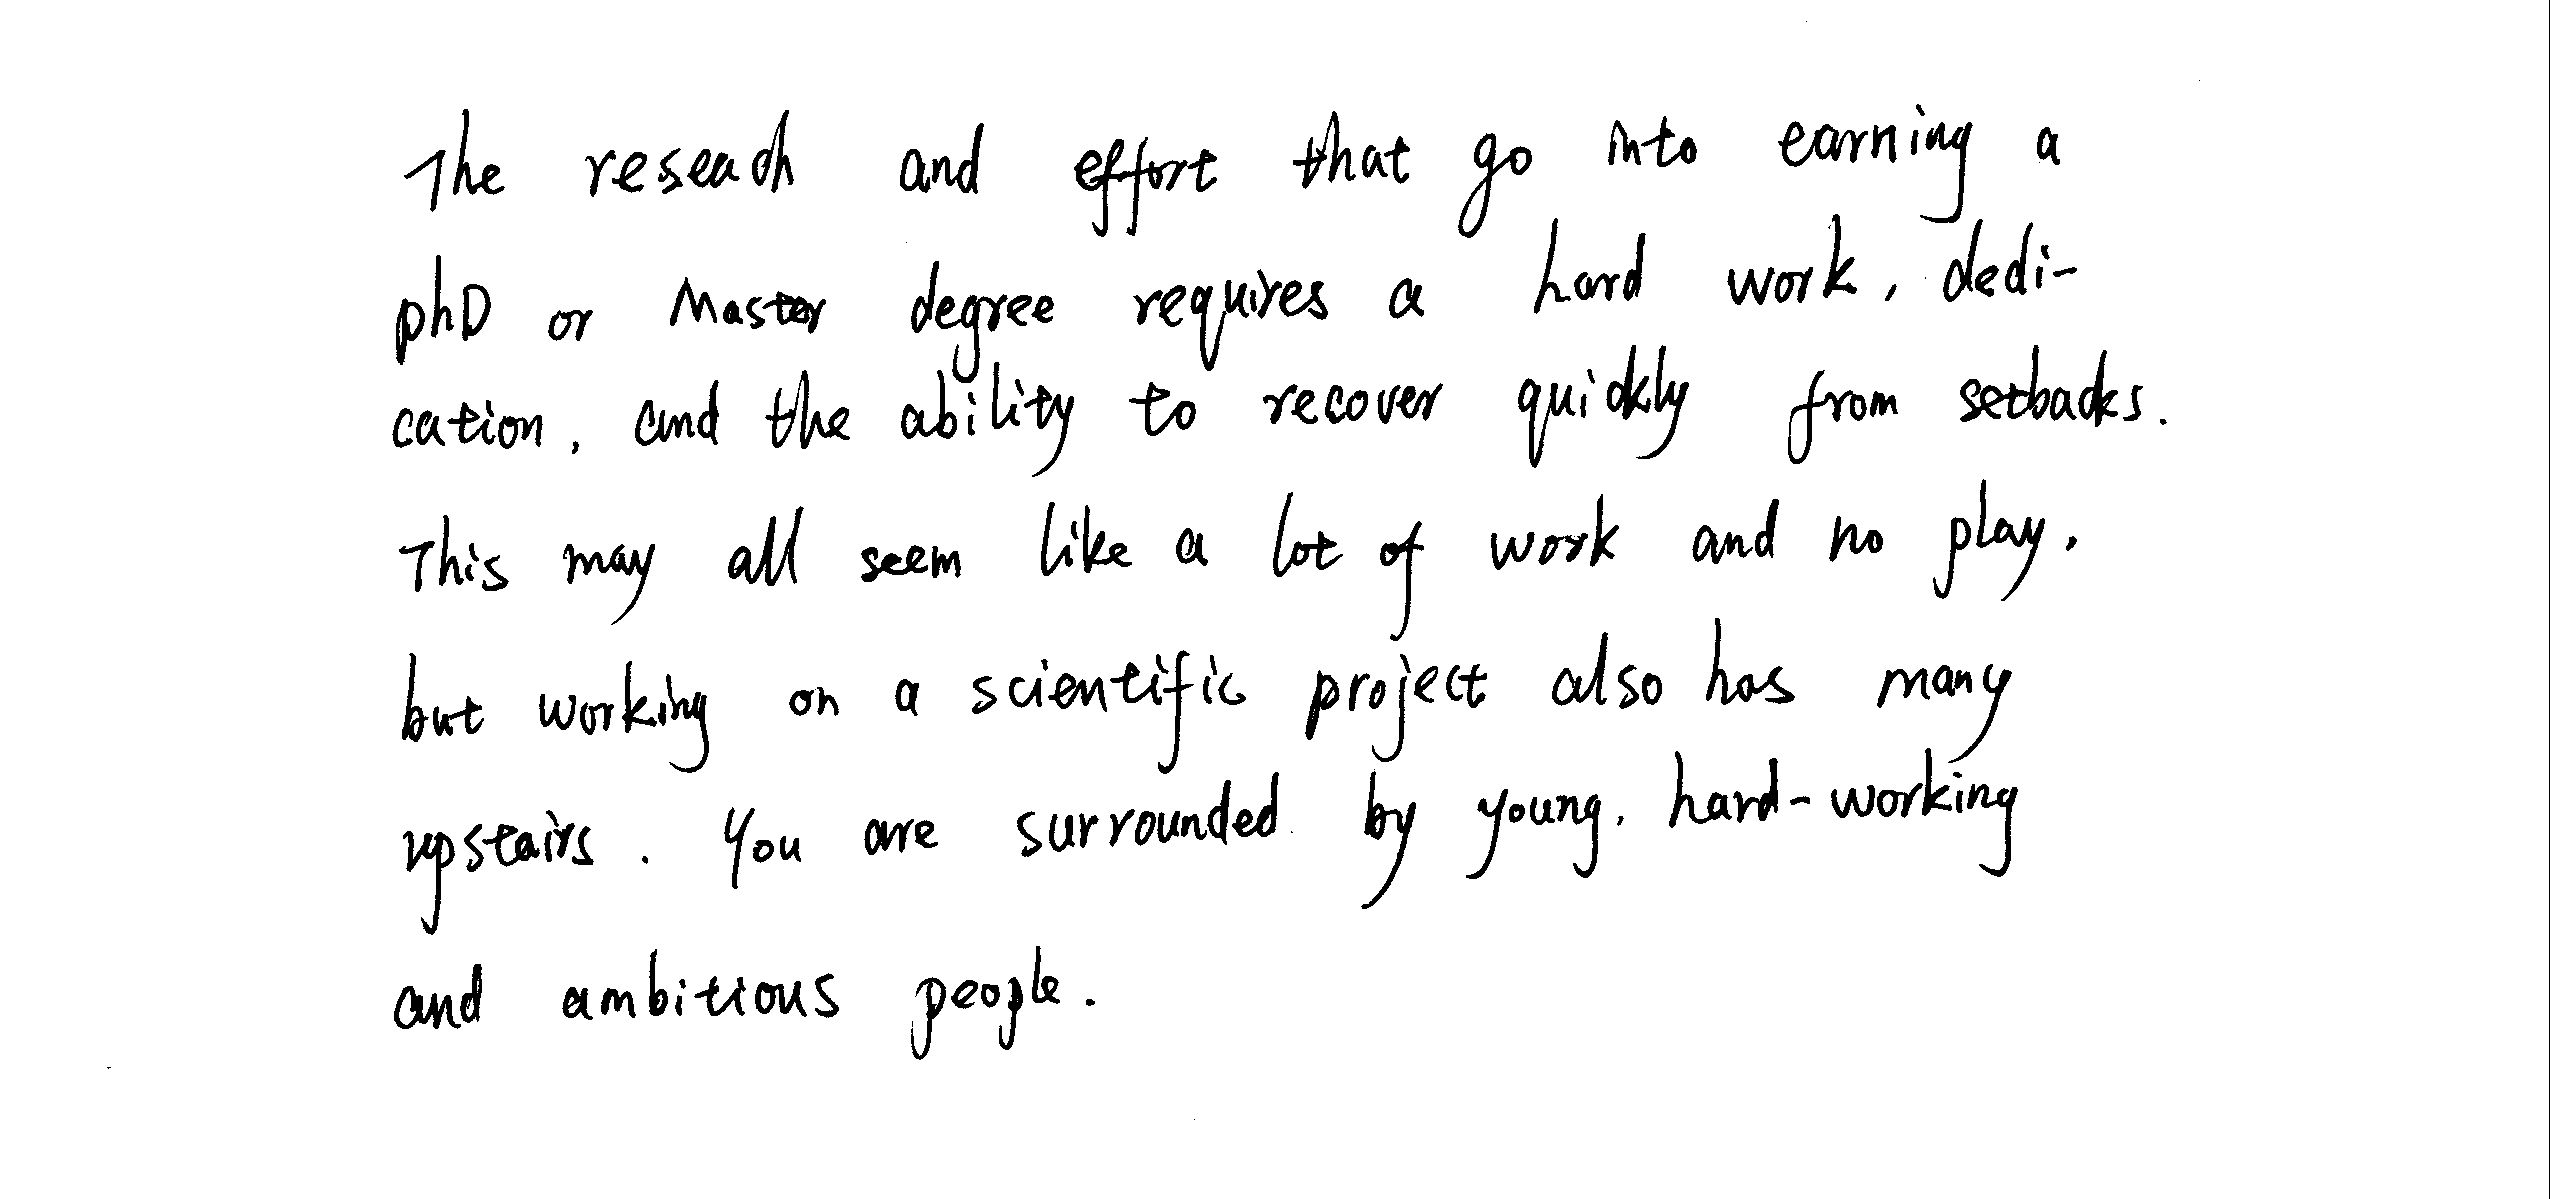 The reseach and effort that go into earning a
phD or Master degree requires a hard work, dedi-
cation, and the ability to recover quickly from setbacks.
This may all seem like a lot of work and no play,
but working on a scientific project also has many
upstairs. You are surrounded by young, hard-working
and ambitious people.